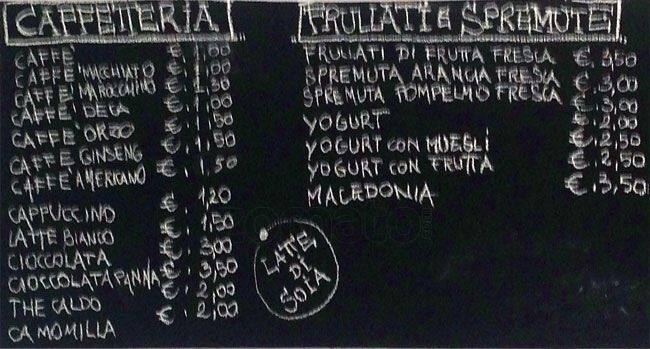 CAFFETTERIA
CAFFÈ € 1,00
CAFFÈ MACCHIATO € 1,00
CAFFÈ MAROCCHINO € 1,30
CAFFÈ DECA € 1,00
CAFFÈ ORZO € 1,50
CAFFÈ GINSENG € 1,50
CAFFÈ AMERICANO € 1,50
CAPPUCCINO € 1,20
LATTE BIANCO € 1,50
CIOCCOLATA € 3,00
CIOCCOLATA PANNA € 3,50
THE CALDO € 2,00
CAMOMILLA € 2,00
FRULLATI E SPREMUTE
FRULLATI DI FRUTTA FRESCA € 3,50
SPREMUTA ARANCIA FRESCA € 3,00
SPREMUTA POMPELMO FRESCA € 3,00
YOGURT € 2,00
YOGURT CON MUESLÌ € 2,50
YOGURT CON FRUTTA € 2,50
MACEDONIA € 3,50
LATTE
DI
SOIA